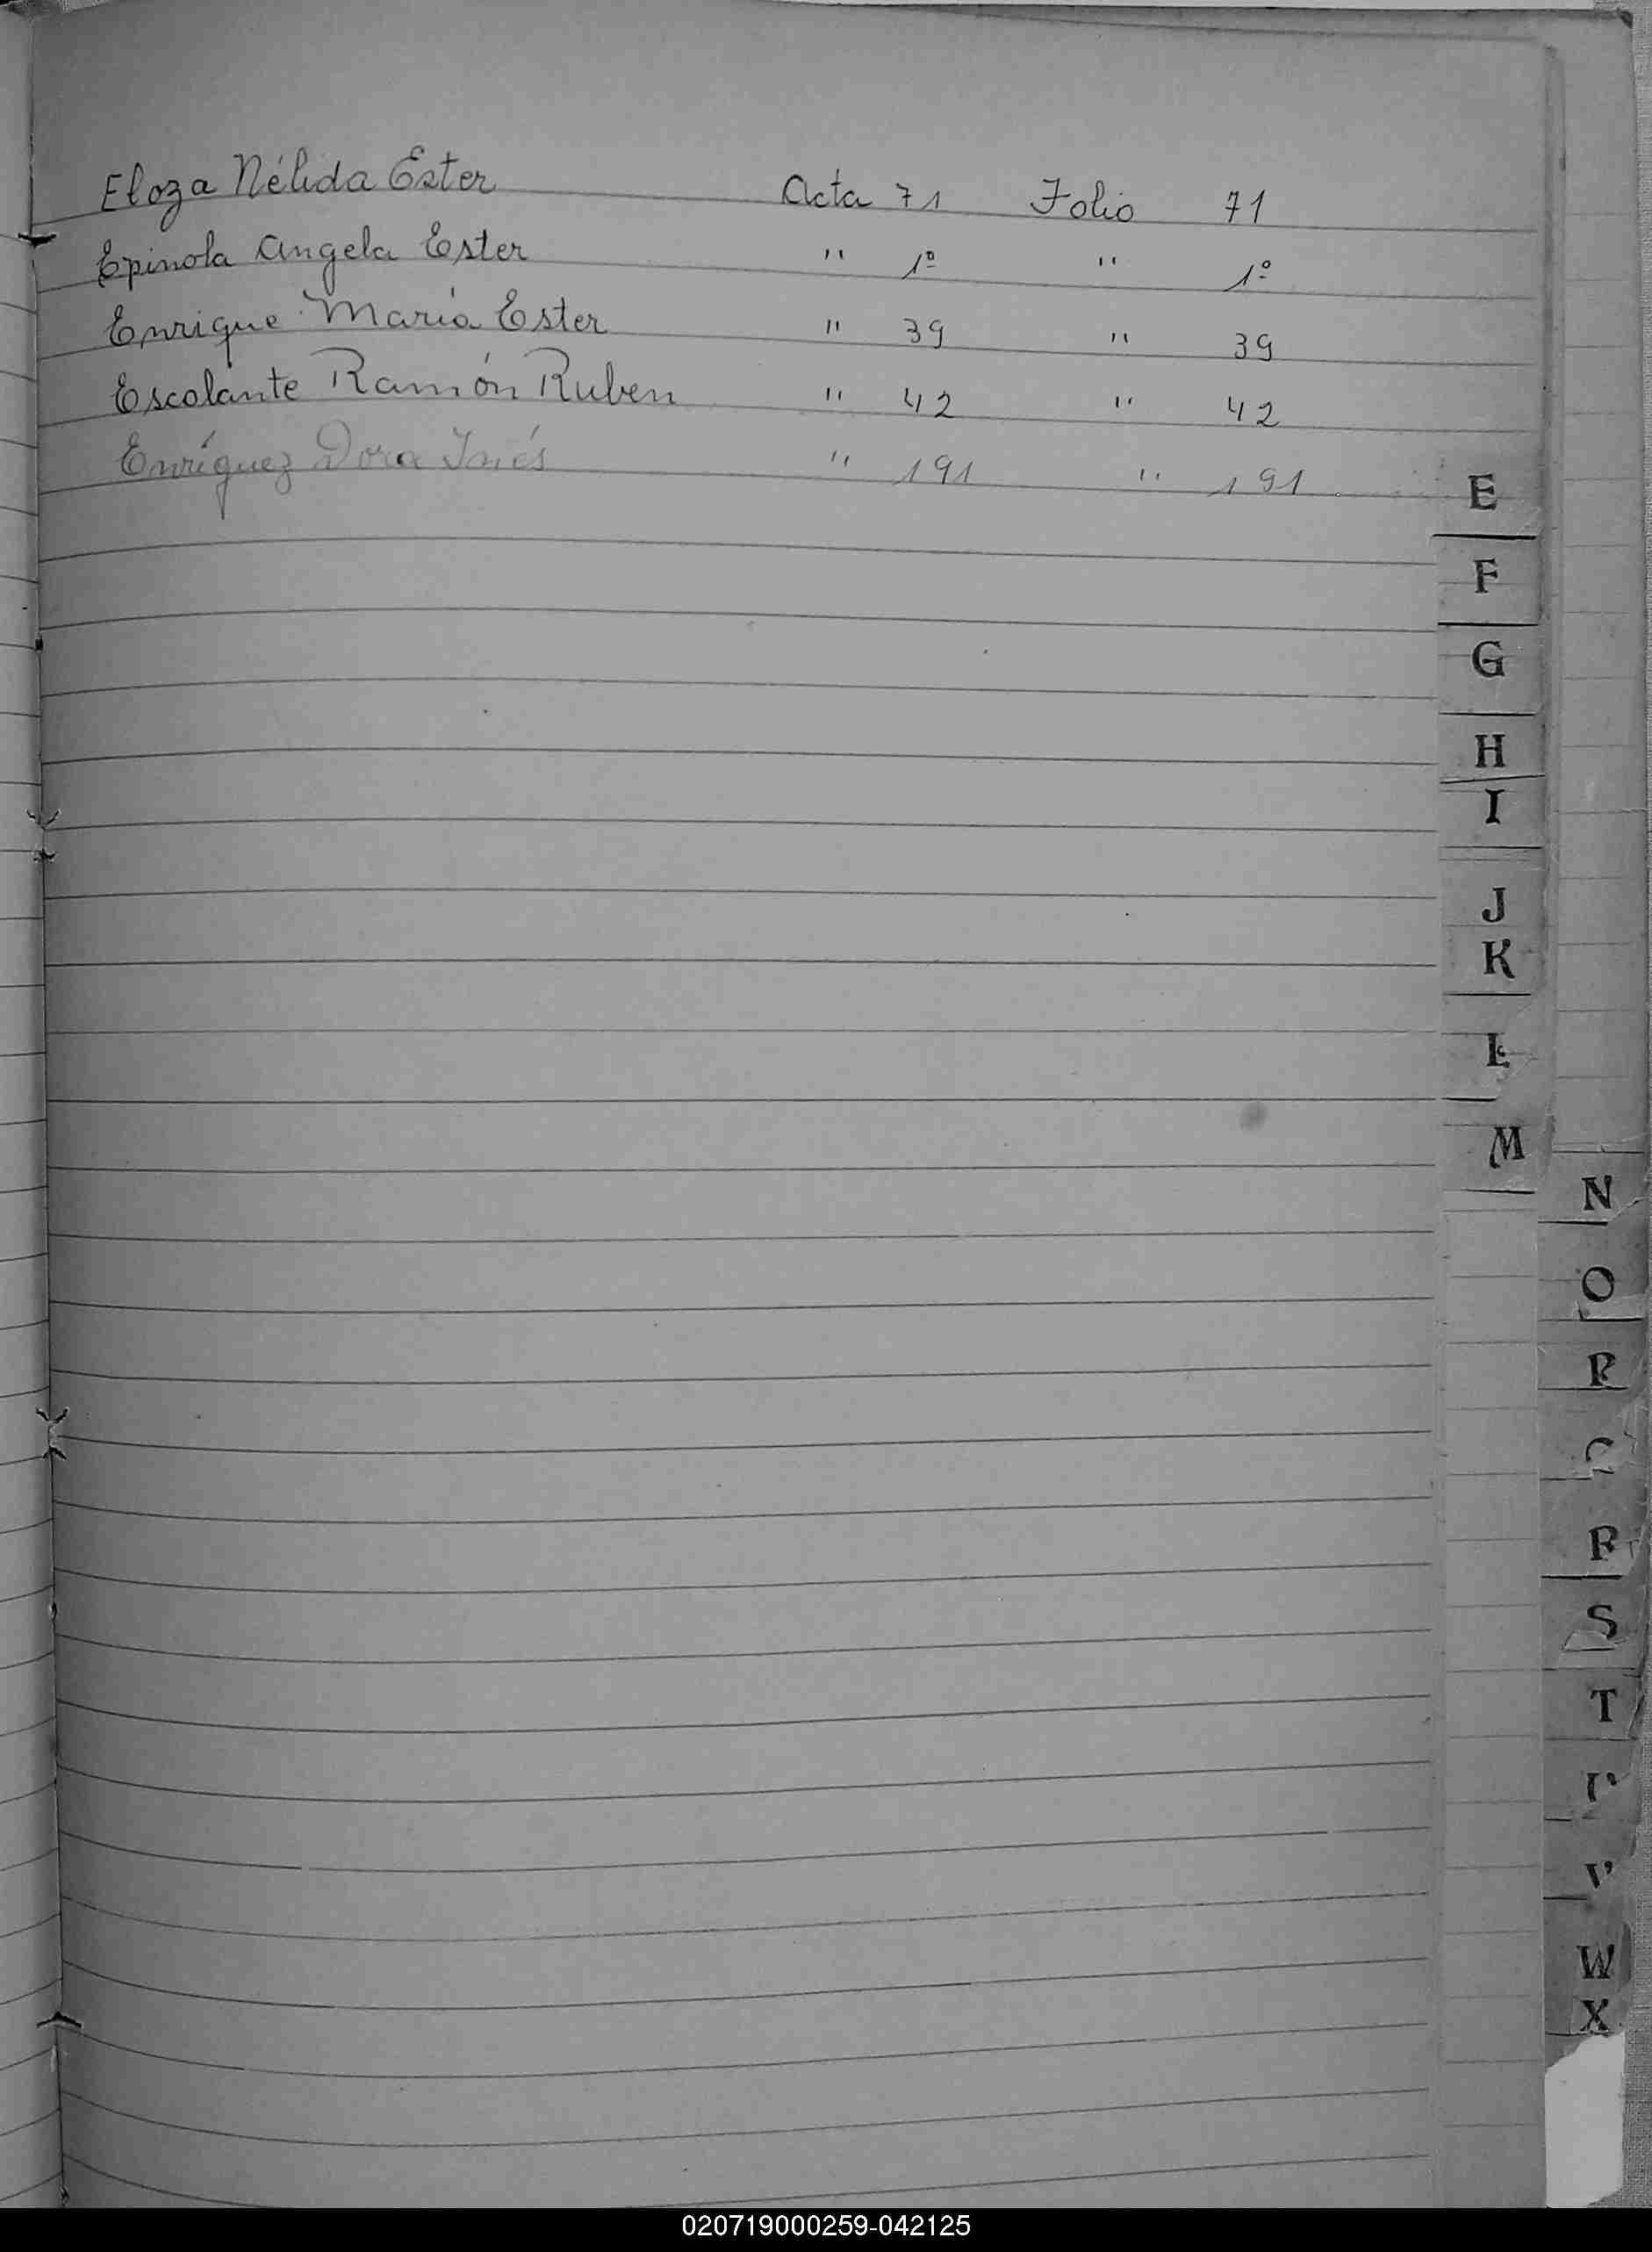 Eloza Nélida Ester Acta 71 Folio 71
Epinola Angela Ester " 1º " 1º
Enrique María Ester " 39 " 39
Escolante Ramón Ruben " 42 " 42
Enríquez Dora Inés " 191 " 191
E
F
G
H
I
J
K
L
M
N
O
P
R
S
T
V
W
X
020719000259-042125